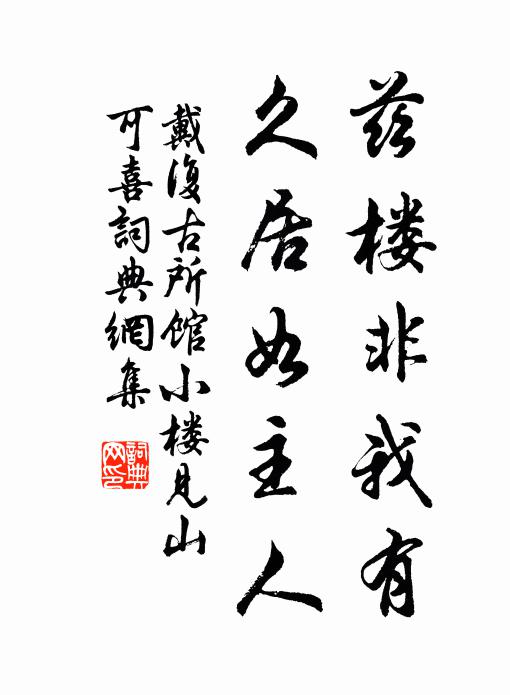 兹楼非我有
久居如主人
戴復古所館小楼見山
可喜詞典網集
詞典网印